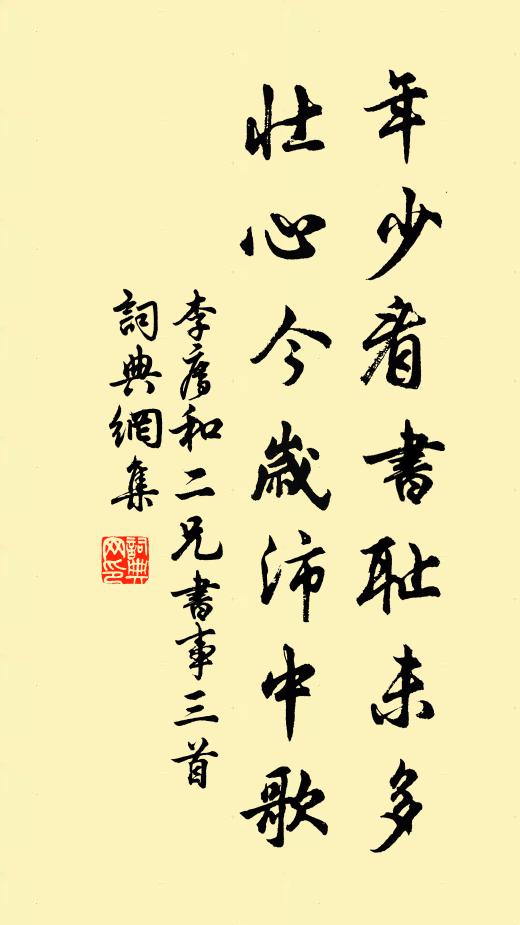 年少看書耻未多
壯心今歲沛中歌
李 和二兄書事三首
詞典網集
詞典網印